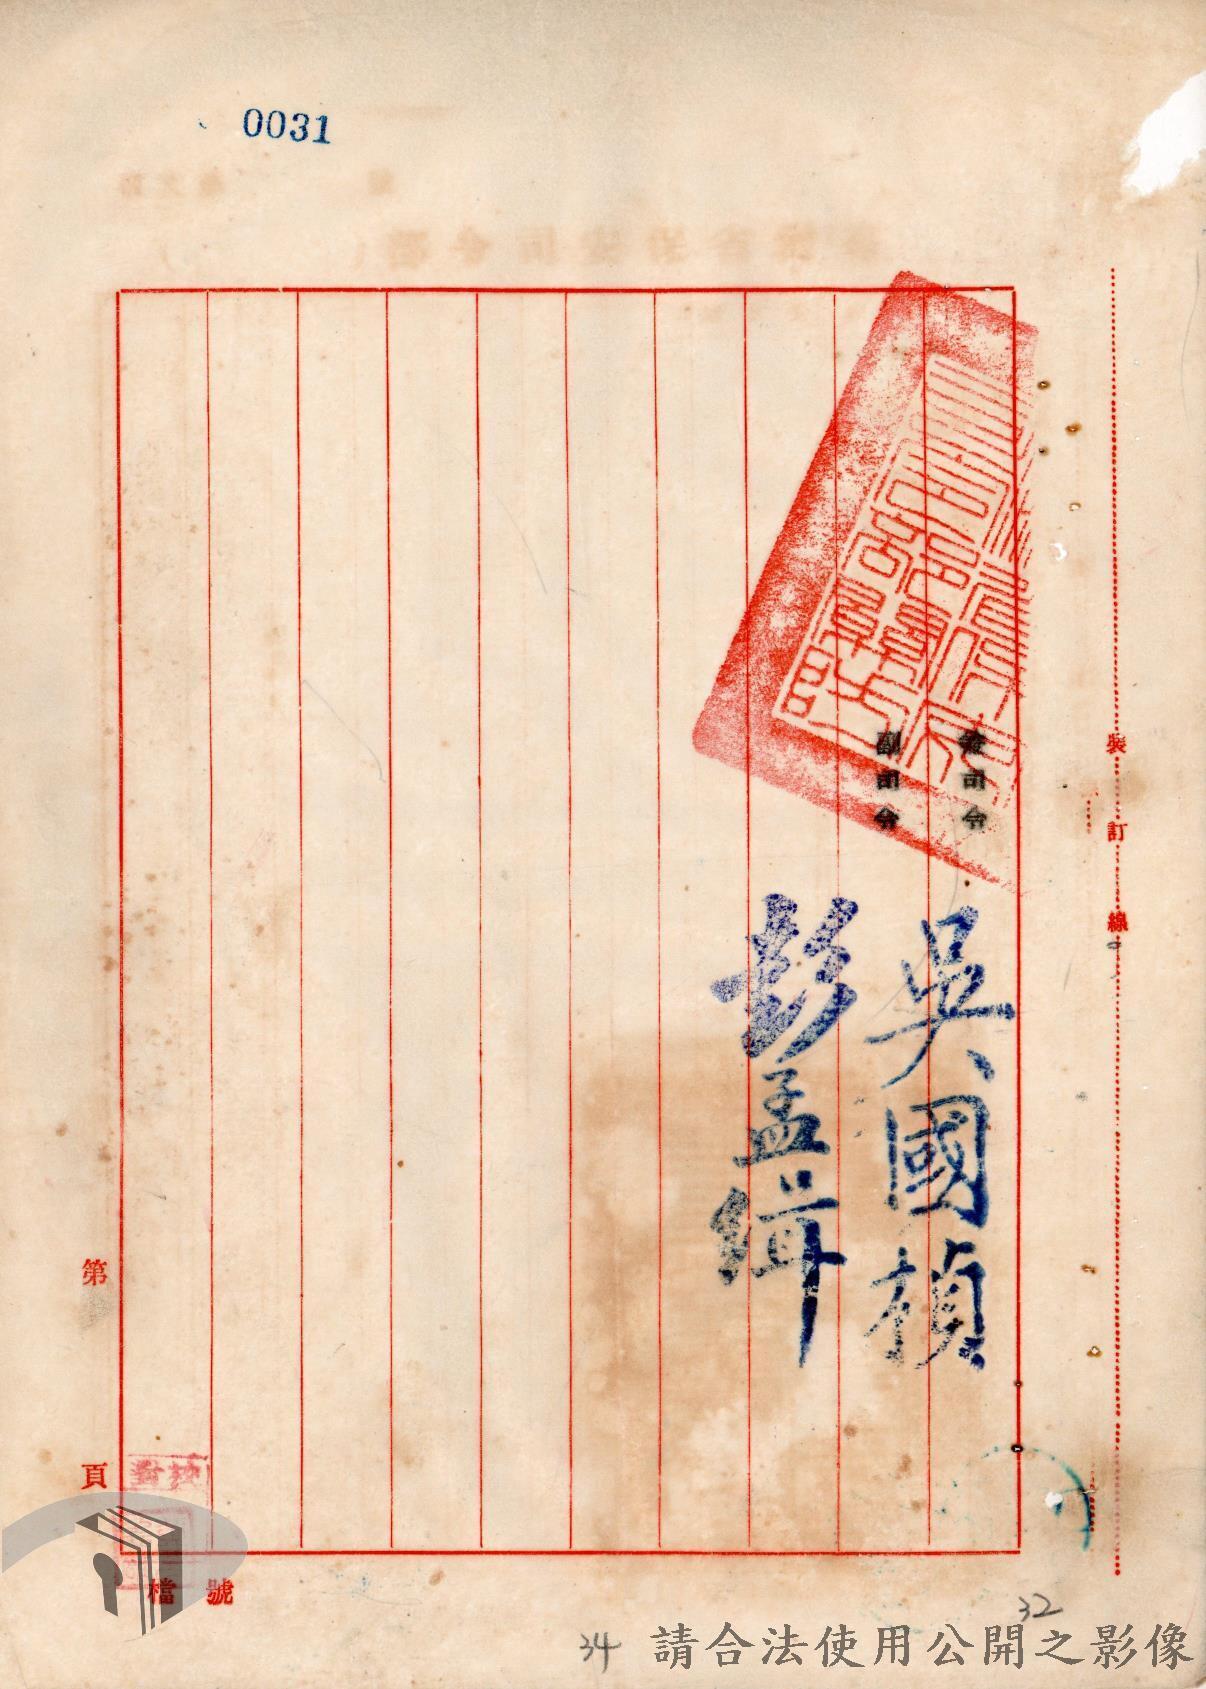 0031
兼司令
吳國楨
副司令
彭孟緝
裝訂線
第
頁
校對
檔號
32
34
請合法使用公開之影像